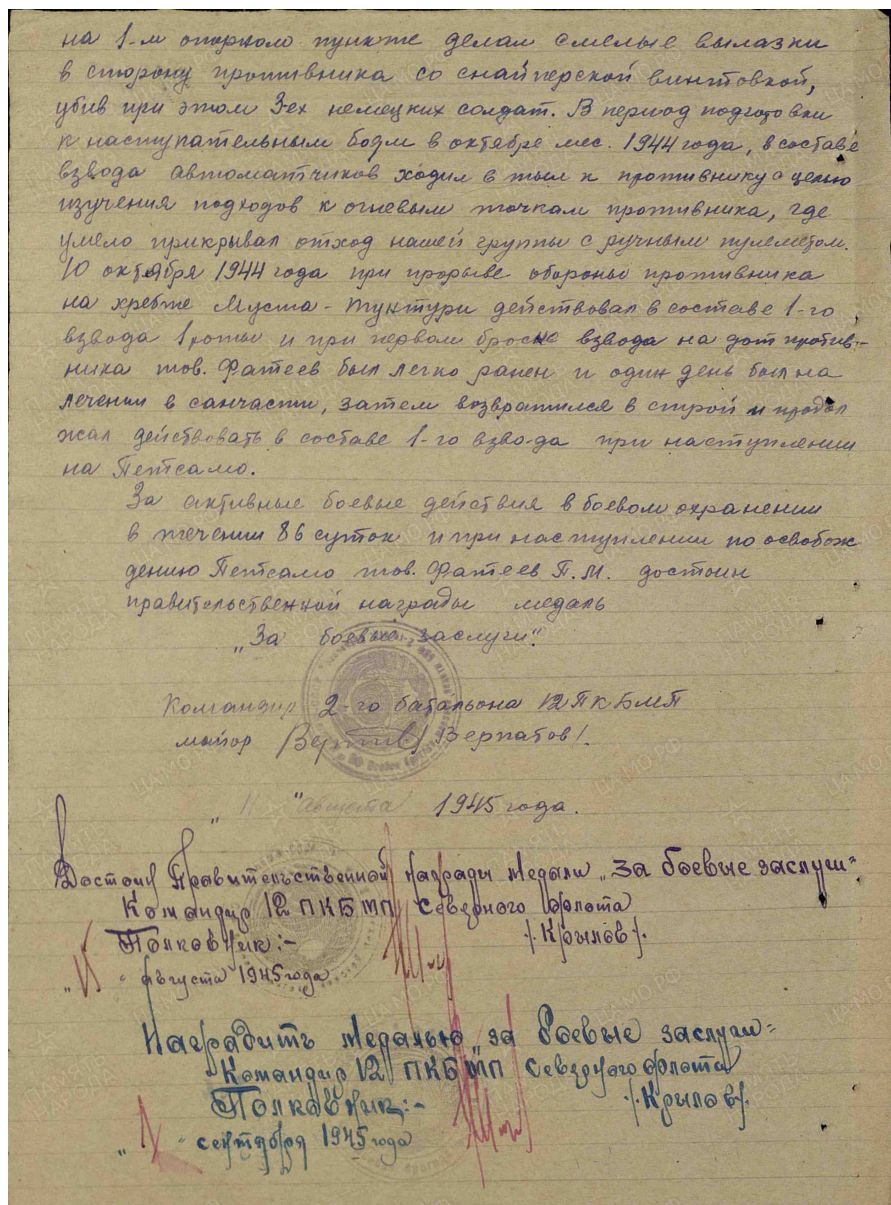 на 1-м опорном пункте делал смелые вылазки
в сторону противника со снайперской винтовкой,
убив при этом 3-ех немецких солдат. В период подготовки
к наступательным боям в октябре мес. 1944 года, в составе
взвода автоматчиков ходил в тыл к противнику с целью
изучения подходов к огневым точкам противника, где
умело прикрывал отход нашей группы с ручным пулеметом.
10 октября 1944 года при прорыве обороны противника
на хребте Муста-Тунтури действовал в составе 1-го
взвода 1 роты и при первом броске взвода на дот против-
ника тов. Фатеев был легко ранен и один день был на
лечении в санчасти, затем возвратился в строй и продол
жал действовать в составе 1-го взвода при наступлении
на Петсамо.
За активные боевые действия в боевом охранении
в течении 86 суток и при наступлении по освобож
дению Петсамо тов. Фатеев П.М. достоин
правительственной награды медаль
„За боевые заслуги".
Командир 2-го батальона 12 ПкБМП
майор /Верпатов/.
" августа 1945 года.
Достоин Правительственной награды медали „За боевые заслуги"
Командир 12 ПКБМП Северного флота
Полковник:- /Крылов/.
" августа 1945 года
Наградить медалью „за боевые заслуги"
Командир 12 ПКБМП Северного флота
Полковник:- /Крылов/.
" сентября 1945 года